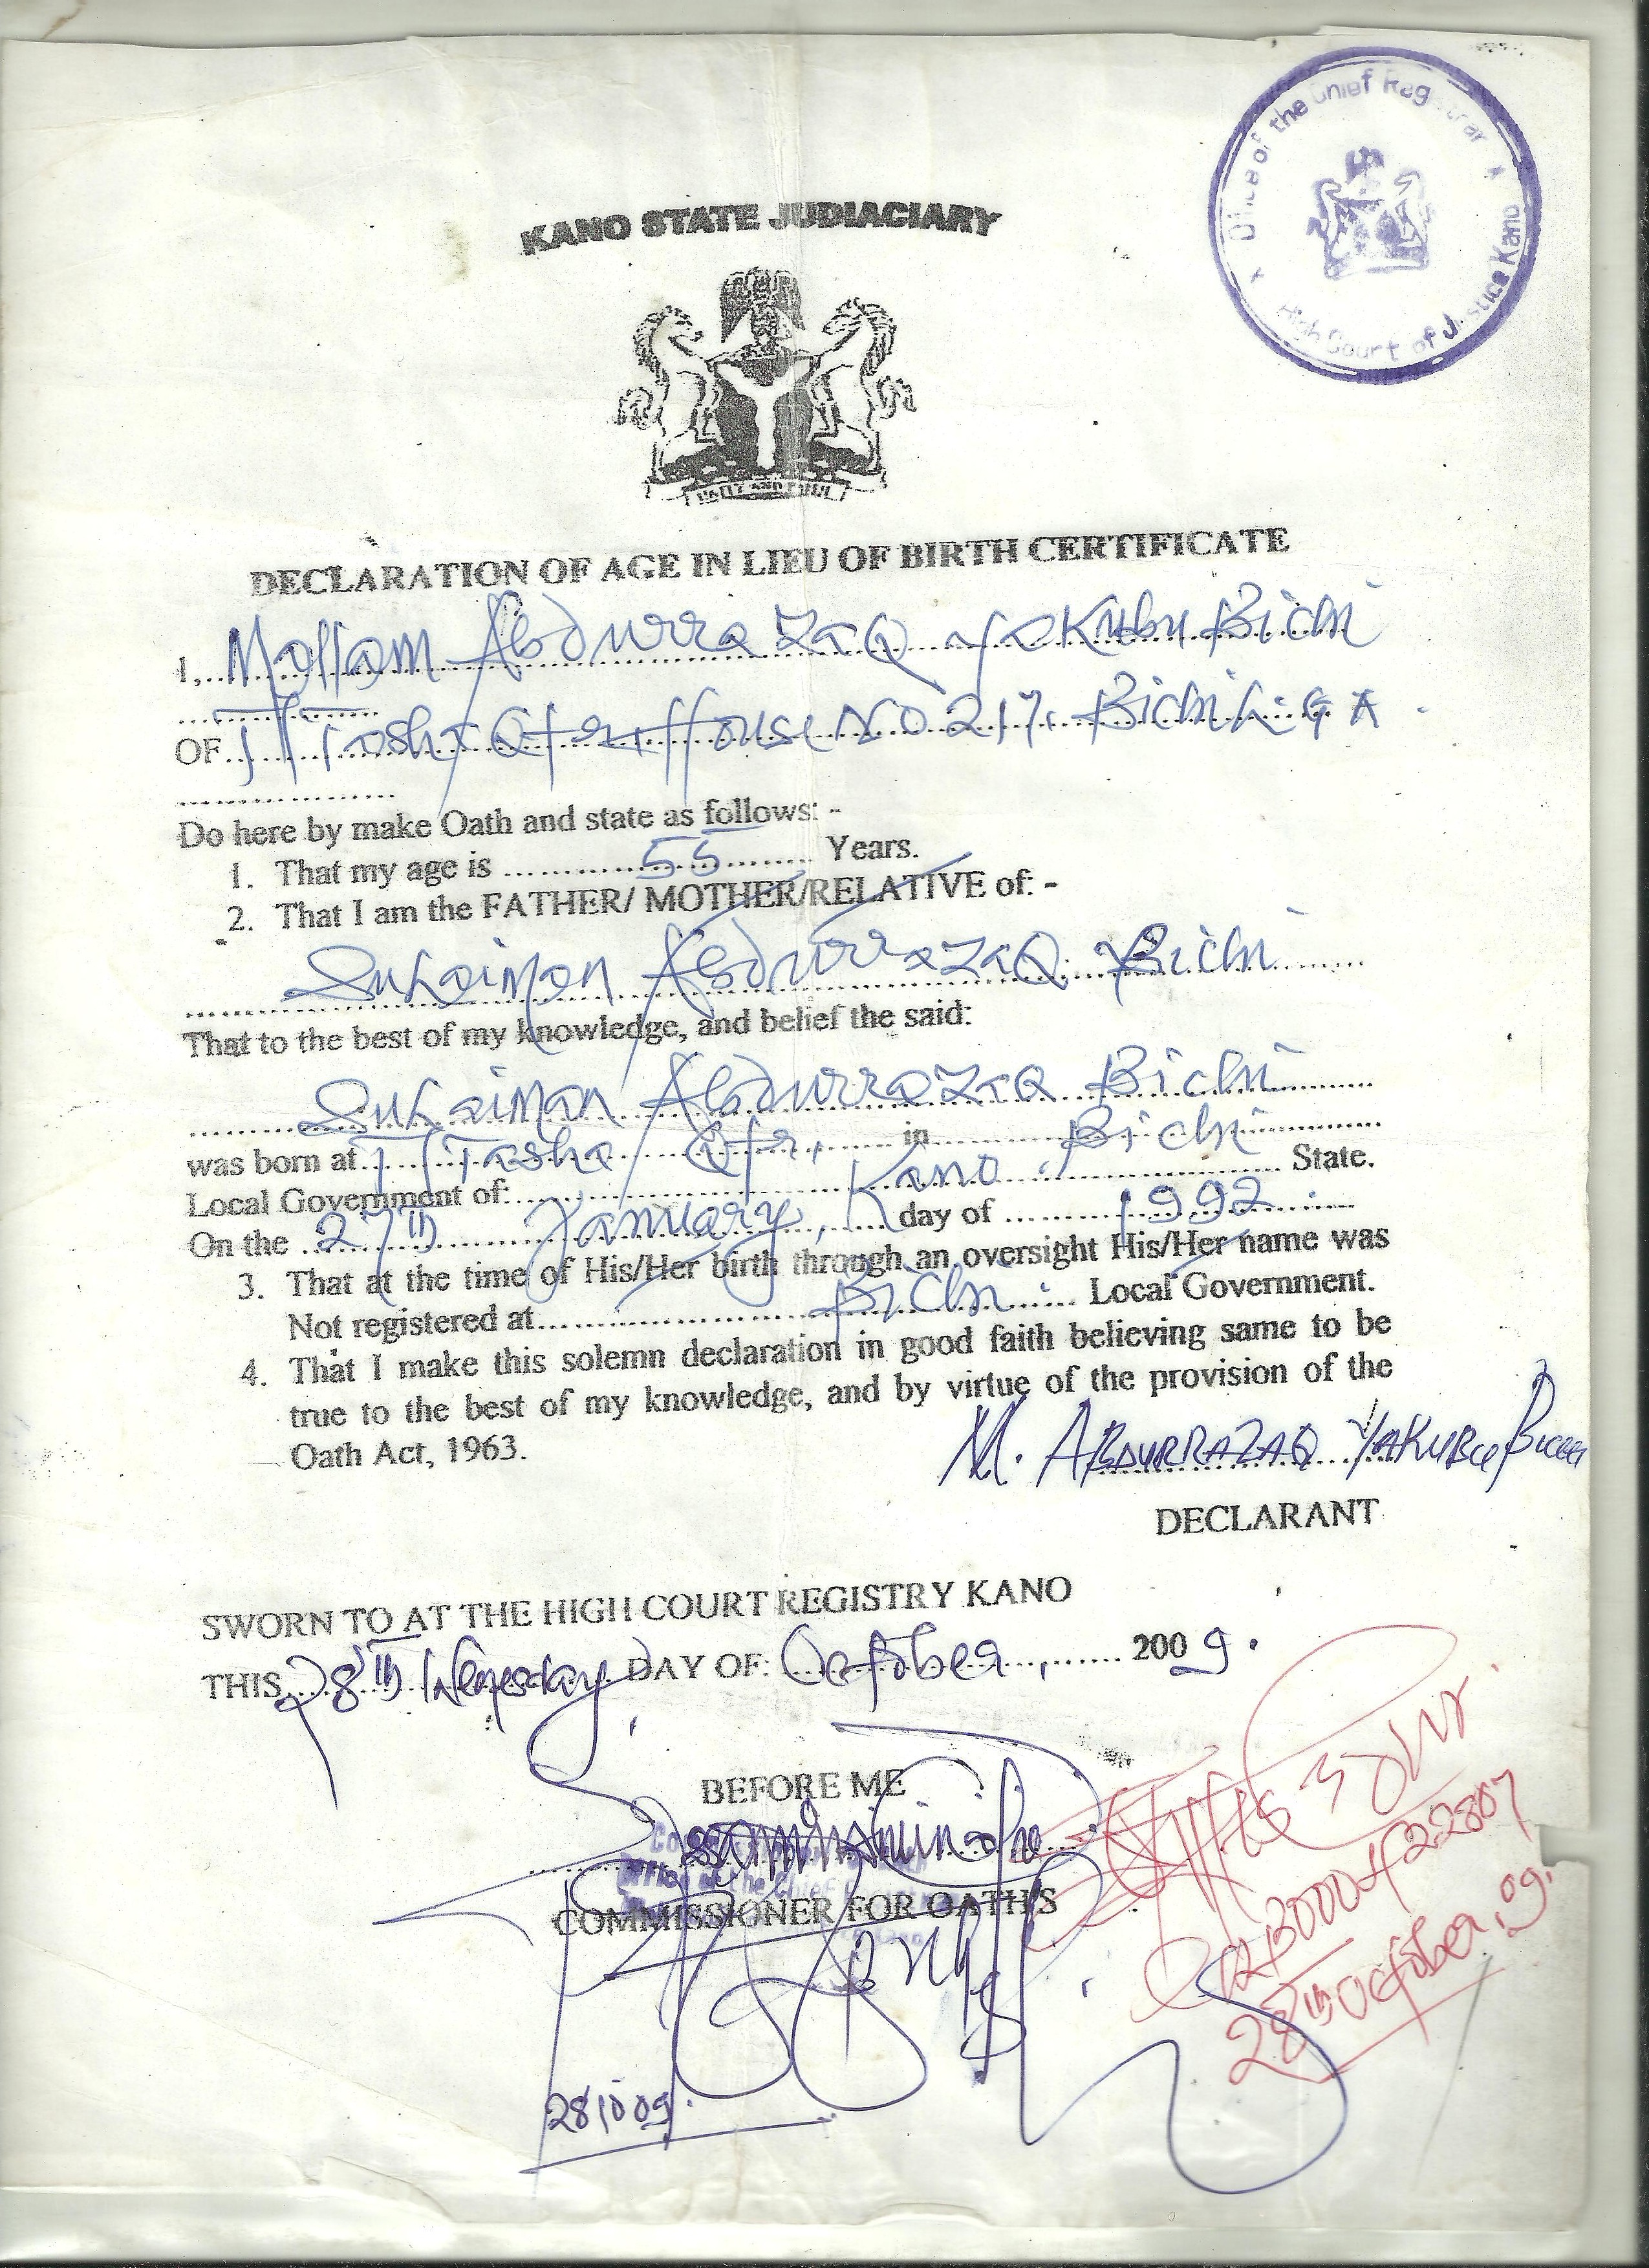 Office of the Chief Registrar
High Court of Justice Kano
KANO STATE JUDIACIARY
UNITY AND FAITH
DECLARATION OF AGE IN LIEU OF BIRTH CERTIFICATE
I, Mallam Abdurrazaq Yakubu Bichi
OF Tasha Qtr House No 217. Bichi L.G A.
Do here by make Oath and state as follows: -
1. That my age is 55 Years.
2. That I am the FATHER/ MOTHER/RELATIVE of: -
Sulaiman Abdurrazaq Bichi
That to the best of my knowledge, and belief the said:
Sulaiman Abdurrazaq Bichi
was born at Tasha Qtr, in Bichi
Local Government of: Kano State.
On the 27th January, day of 1992.
3. That at the time of His/Her birth through an oversight His/Her name was
Not registered at Bichi Local Government.
4. That I make this solemn declaration in good faith believing same to be
true to the best of my knowledge, and by virtue of the provision of the
Oath Act, 1963.
M. ABDURRAZAQ YAKUBU Bichi
DECLARANT
SWORN TO AT THE HIGH COURT REGISTRY KANO
THIS 28th Wenesday DAY OF: October, 2009.
BEFORE ME
COMMISSIONER FOR OATH'S
28th October, 09.
28/10/09.